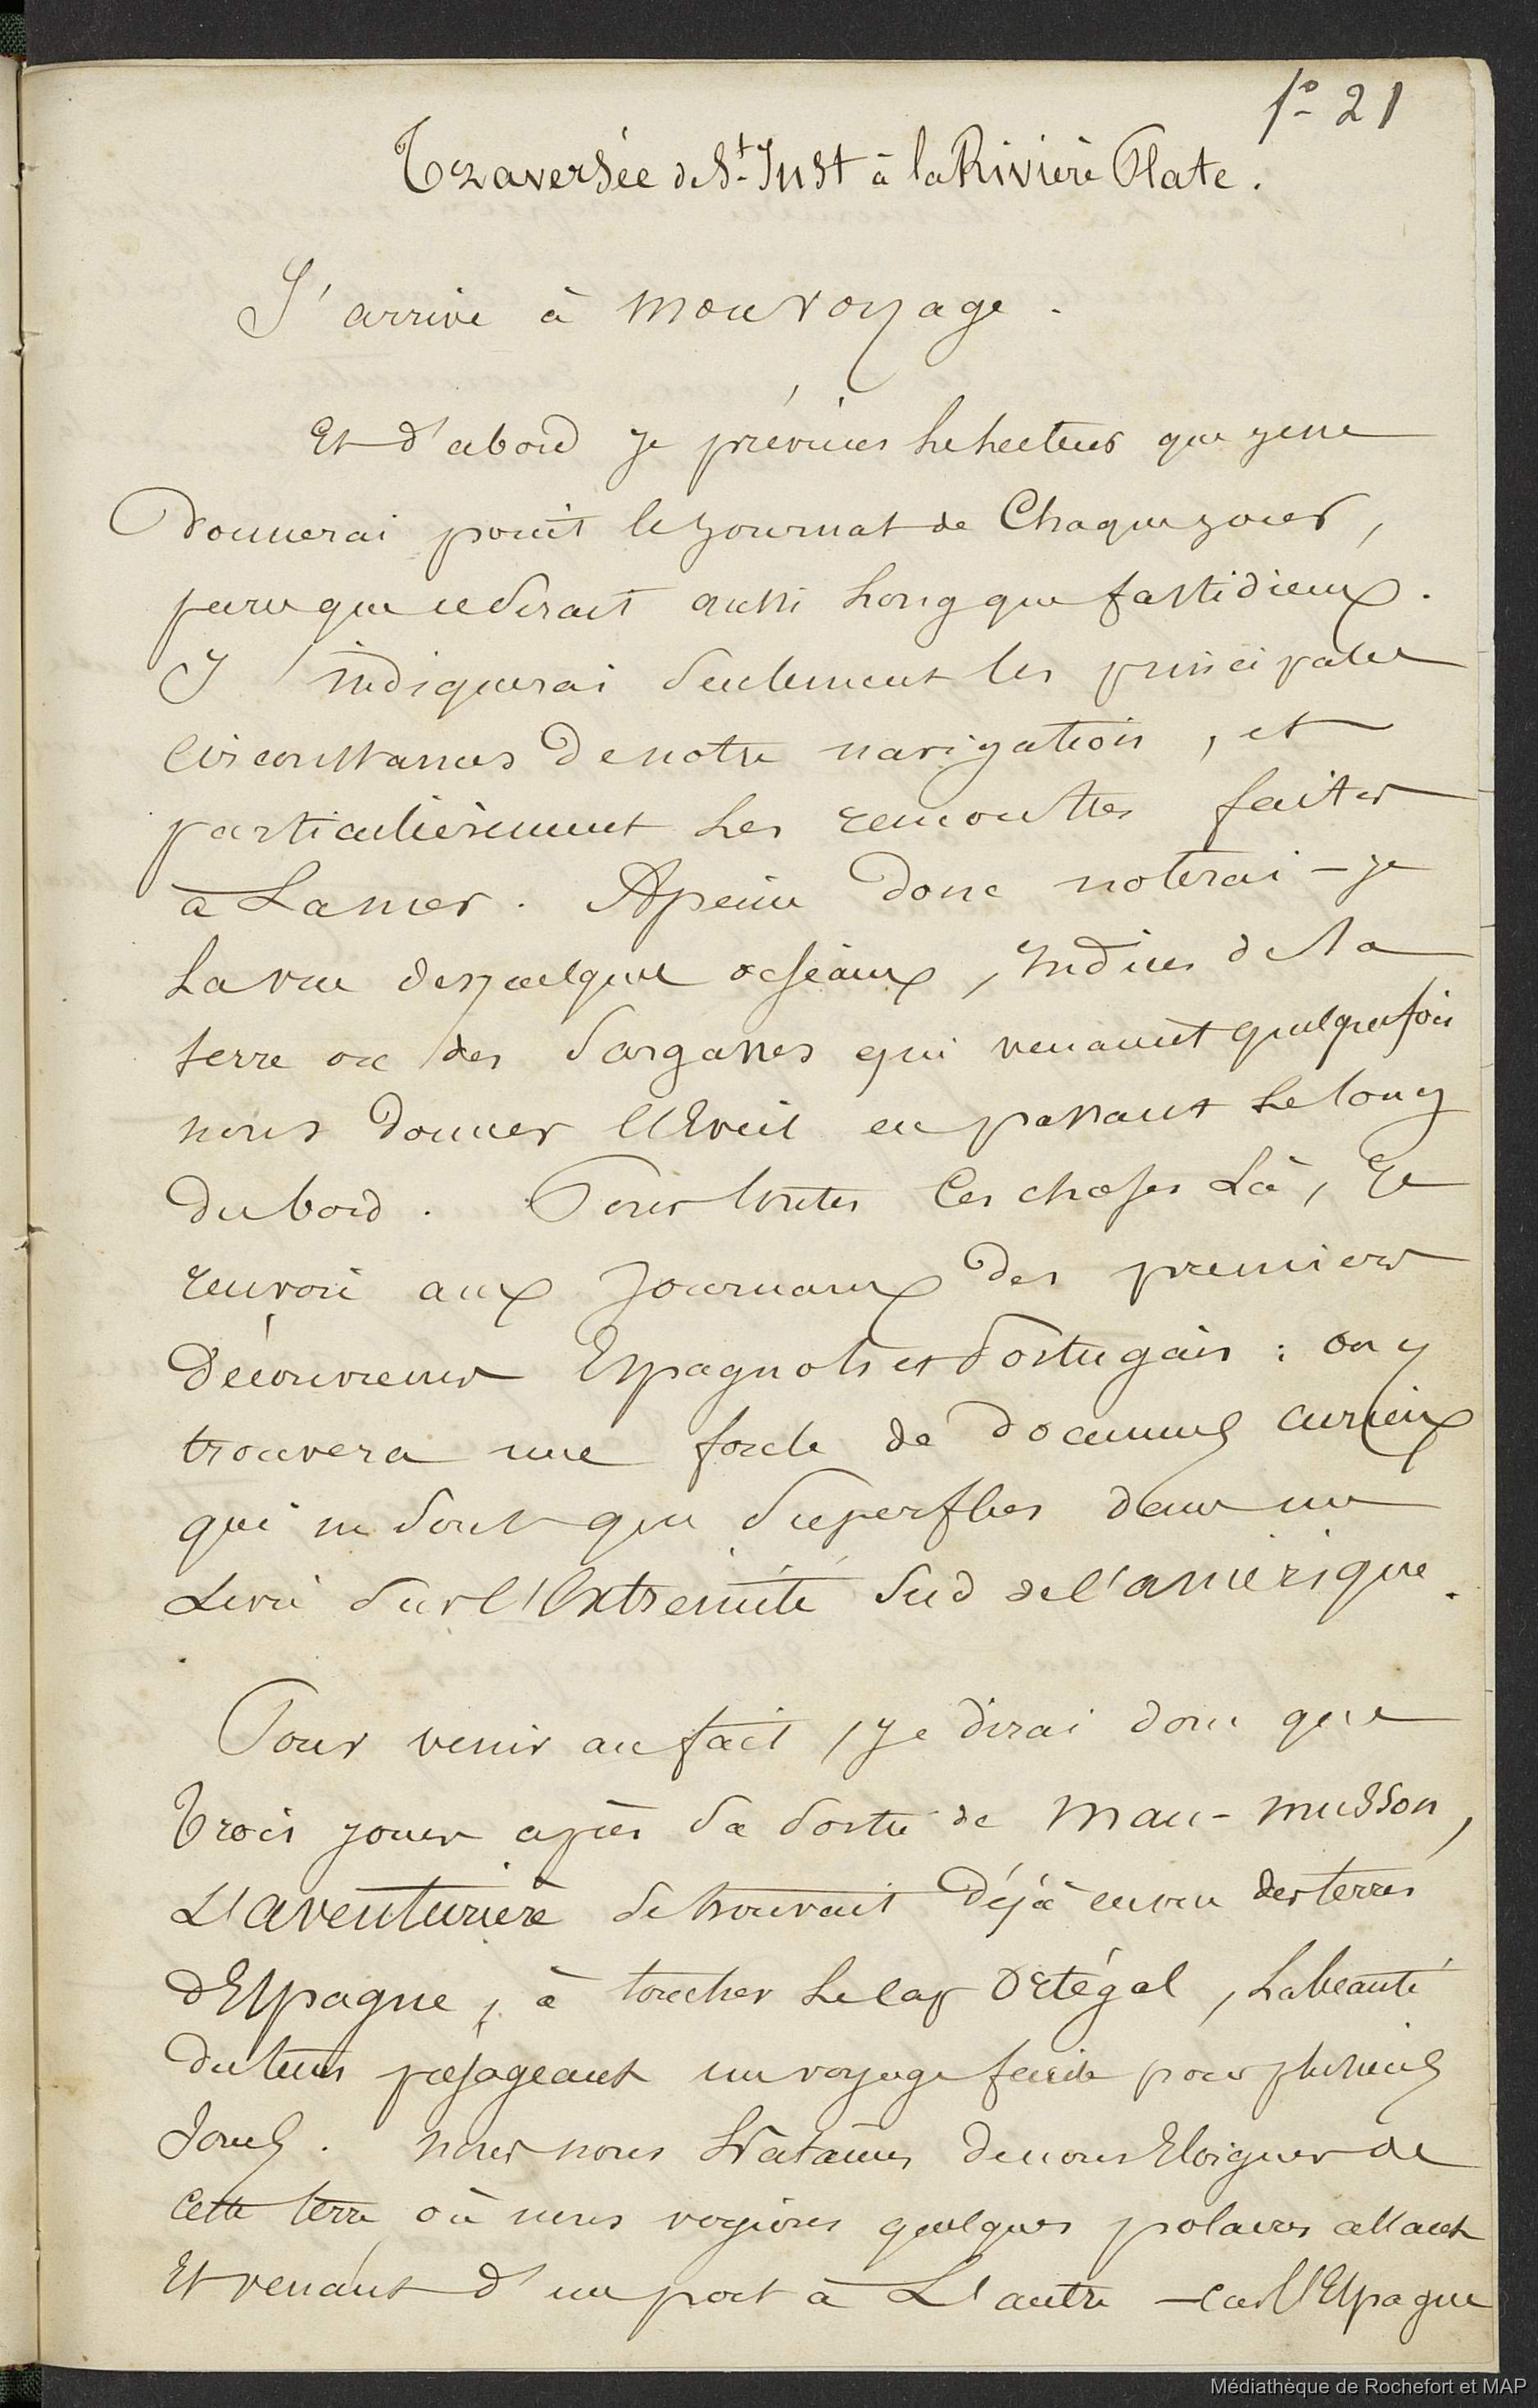 fo 21
Traversée de St Just à la Rivière Plate.
J'arrive à mon voyage.
Et d'abord je préviens le lecteur que je ne
donnerai point le journal de chaque jour,
parce que ce serait aussi long que fastidieux.
J'indiquerai seulement les principales
circonstances de notre navigation, et
particulièrement les rencontres faites
à la mer. A peine donc noterai-je
la vue des quelques oiseaux, indices de la
terre ou des sargasses qui venaient quelquefois
nous donner l'Eveil en passant le long
du bord. Pour toutes ces choses là, Je
renvoie aux Journaux des premiers
découvreurs Espagnols et Portugais : on y
trouvera une foule de documens curieux
qui ne sont que superflus dans un
Livre sur l'Extrémité sud de l'amérique.
Pour venir au fait, je dirai donc que
trois jours après sa sortie de Mau-musson,
L'aventurière se trouvait déjà en vue des terres
d'Espagne, à toucher le cap Ortégal, la beauté
du tems présageant un voyage facile pour plusieurs
Jours. nous nous hatâmes de nous Eloigner de
cette terre, où nous voyions quelques polacres allant
Et venant d'un port à L'autre — car l'Espagne
Médiathèque de Rochefort et MAP